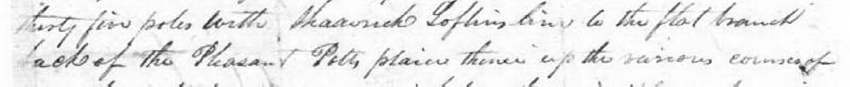 thirty five poles with Shadrick Loftins line to the flat branch
back of the Pleasant Potts plaice thence up the various courses of